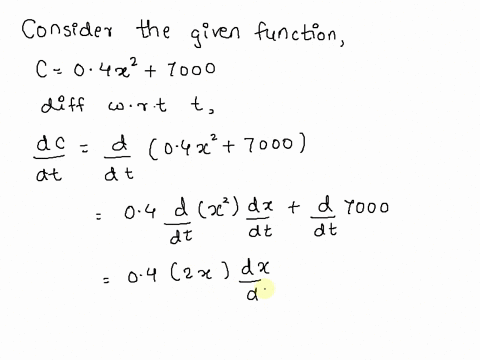 Consider the given function,
C = 0.4x² + 7000
diff w.r.t t,
dC/dt = d/dt (0.4x² + 7000)
= 0.4 d/dt (x²) dx/dt + d/dt 7000
= 0.4 (2x) dx/d